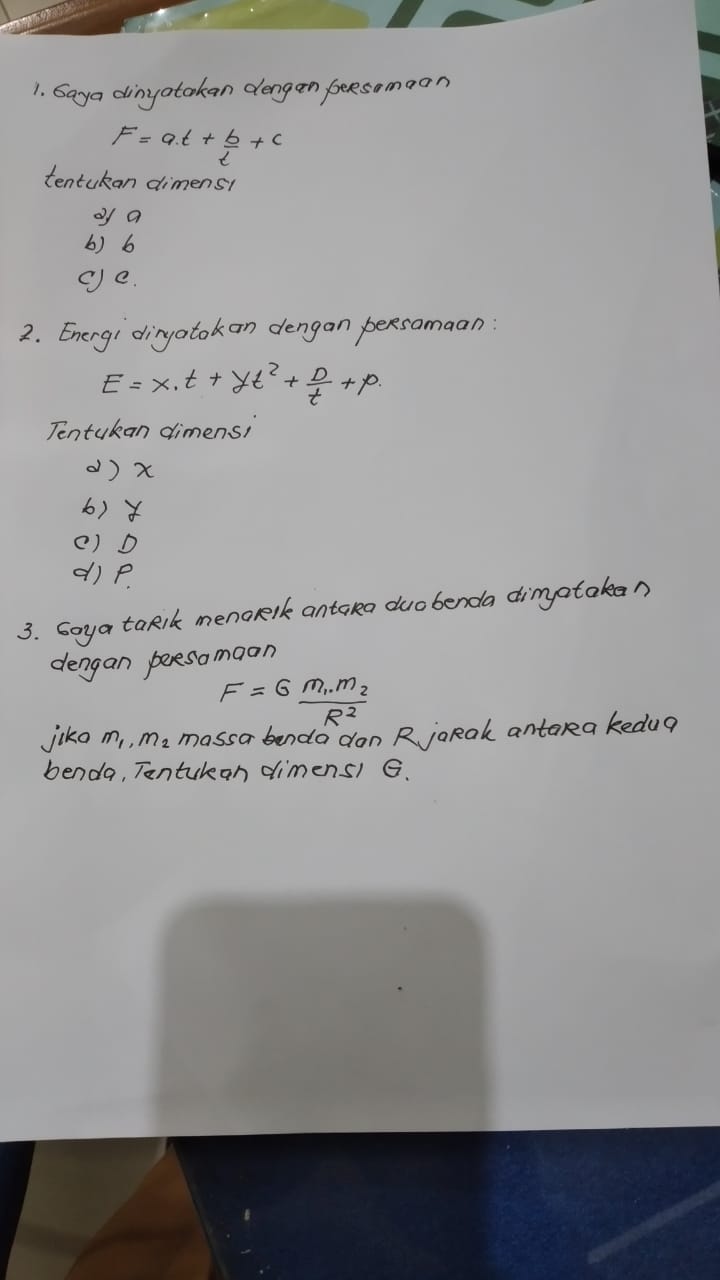 1. Gaya dinyatakan dengan persamaan
F = a.t + b/t + c
tentukan dimensi
a) a
b) b
c) c.
2. Energi dinyatakan dengan persamaan :
E = x.t + yt² + D/t + p.
Tentukan dimensi
a) x
b) y
c) D
d) P.
3. Gaya tarik menarik antara dua benda dinyatakan
dengan persamaan
F = G m₁.m₂/R²
jika m₁, m₂ massa benda dan R jarak antara kedua
benda, Tentukan dimensi G.